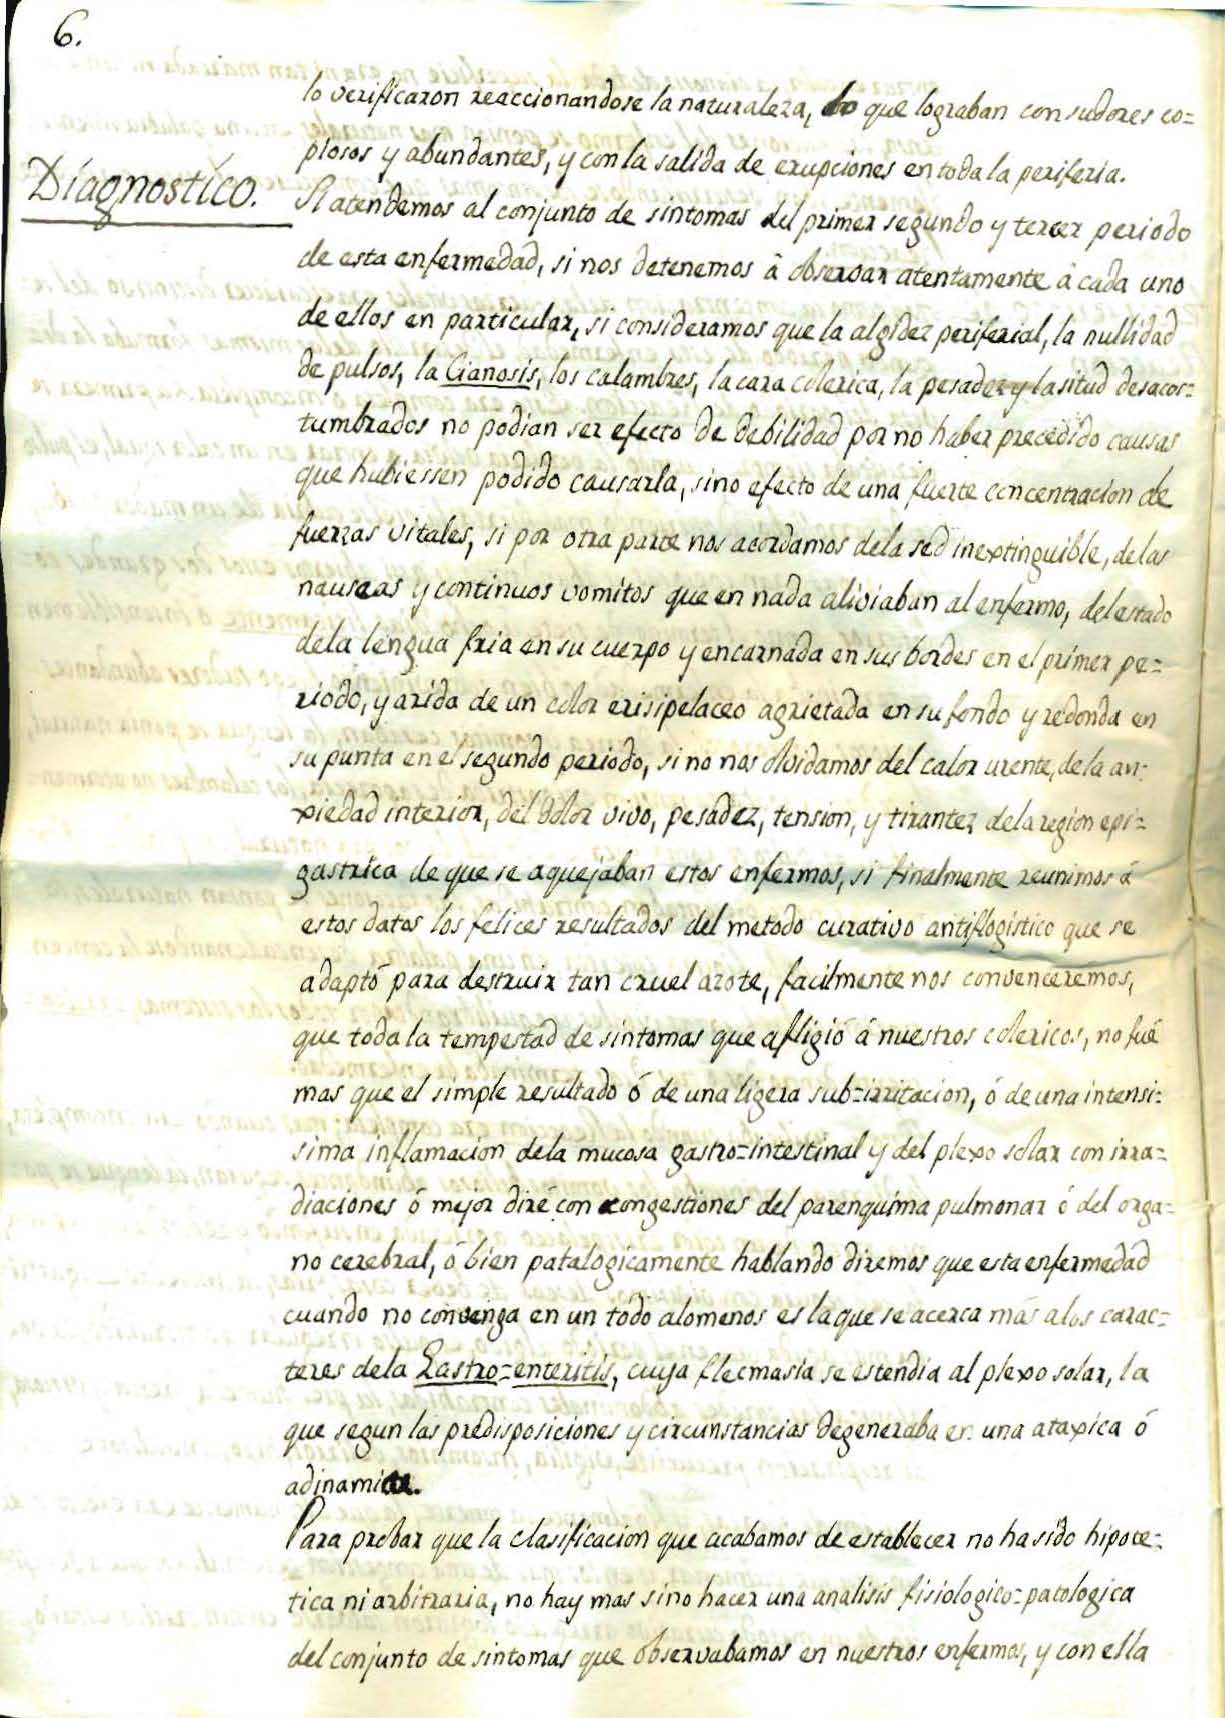 6.
lo verificaron reaccionandose la naturaleza, lo que lograban con sudores co=
piosos y abundantes, y con la salida de erupciones en toda la periferia.
Diagnostico.
Si atendemos al conjunto de sintomas del primer segundo y tercer periodo
de esta enfermedad, si nos detenemos â observar atentamente â cada uno
de ellos en particular, si consideramos que la algidez periferial, la nullidad
de pulsos, la Cianosis, los calambres, la cara colerica, la pesadez y lasitud desacos=
tumbrados no podian ser efecto de debilidad por no haber precedido causas
que hubiessen podido causarla, sino efecto de una fuerte concentracion de
fuerzas vitales, si por otra parte nos acordamos dela sed inextinguible, delas
nauseas y continuos vomitos que en nada aliviaban al enfermo, del estado
dela lengua fria en su cuerpo y encarnada en sus bordes en el primer pe=
riodo, y arida de un color erisipelaceo agrietada en su fondo y redonda en
su punta en el segundo periodo, si no nos olvidamos del calor urente, dela an=
xiedad interior, del dolor vivo, pesadez, tension, y tirantez dela region epi=
gastrica de que se aquejaban estos enfermos, si finalmente reunimos á
estos datos los felices resultados del metodo curativo antiflogistico que se
adaptó para destruir tan cruel azote, facilmente nos convenceremos,
que toda la tempestad de sintomas que afligió á nuestros colericos, no fué
mas que el simple resultado ó de una ligera sub=irritacion, ó de una intensi=
sima inflamacion dela mucosa gastro=intestinal y del plexo solar con irra=
diaciones ó mejor diré con congestiones del parenquima pulmonar ó del orga=
no cerebral, ó bien patalogicamente hablando diremos que esta enfermedad
cuando no convenga en un todo alomenos es la que se acerca más alos carac=
teres dela Gastro=enteritis, cuya flecmasia se estendia al plexo solar, la
que segun las predisposiciones y circunstancias degeneraba en una ataxica ó
adinamica.
Para probar que la clasificacion que acabamos de establecer no ha sido hipote=
tica ni arbitraria, no hay mas sino hacer una analisis fisiologico=patologica
del conjunto de sintomas que observabamos en nuestros enfermos, y con ella